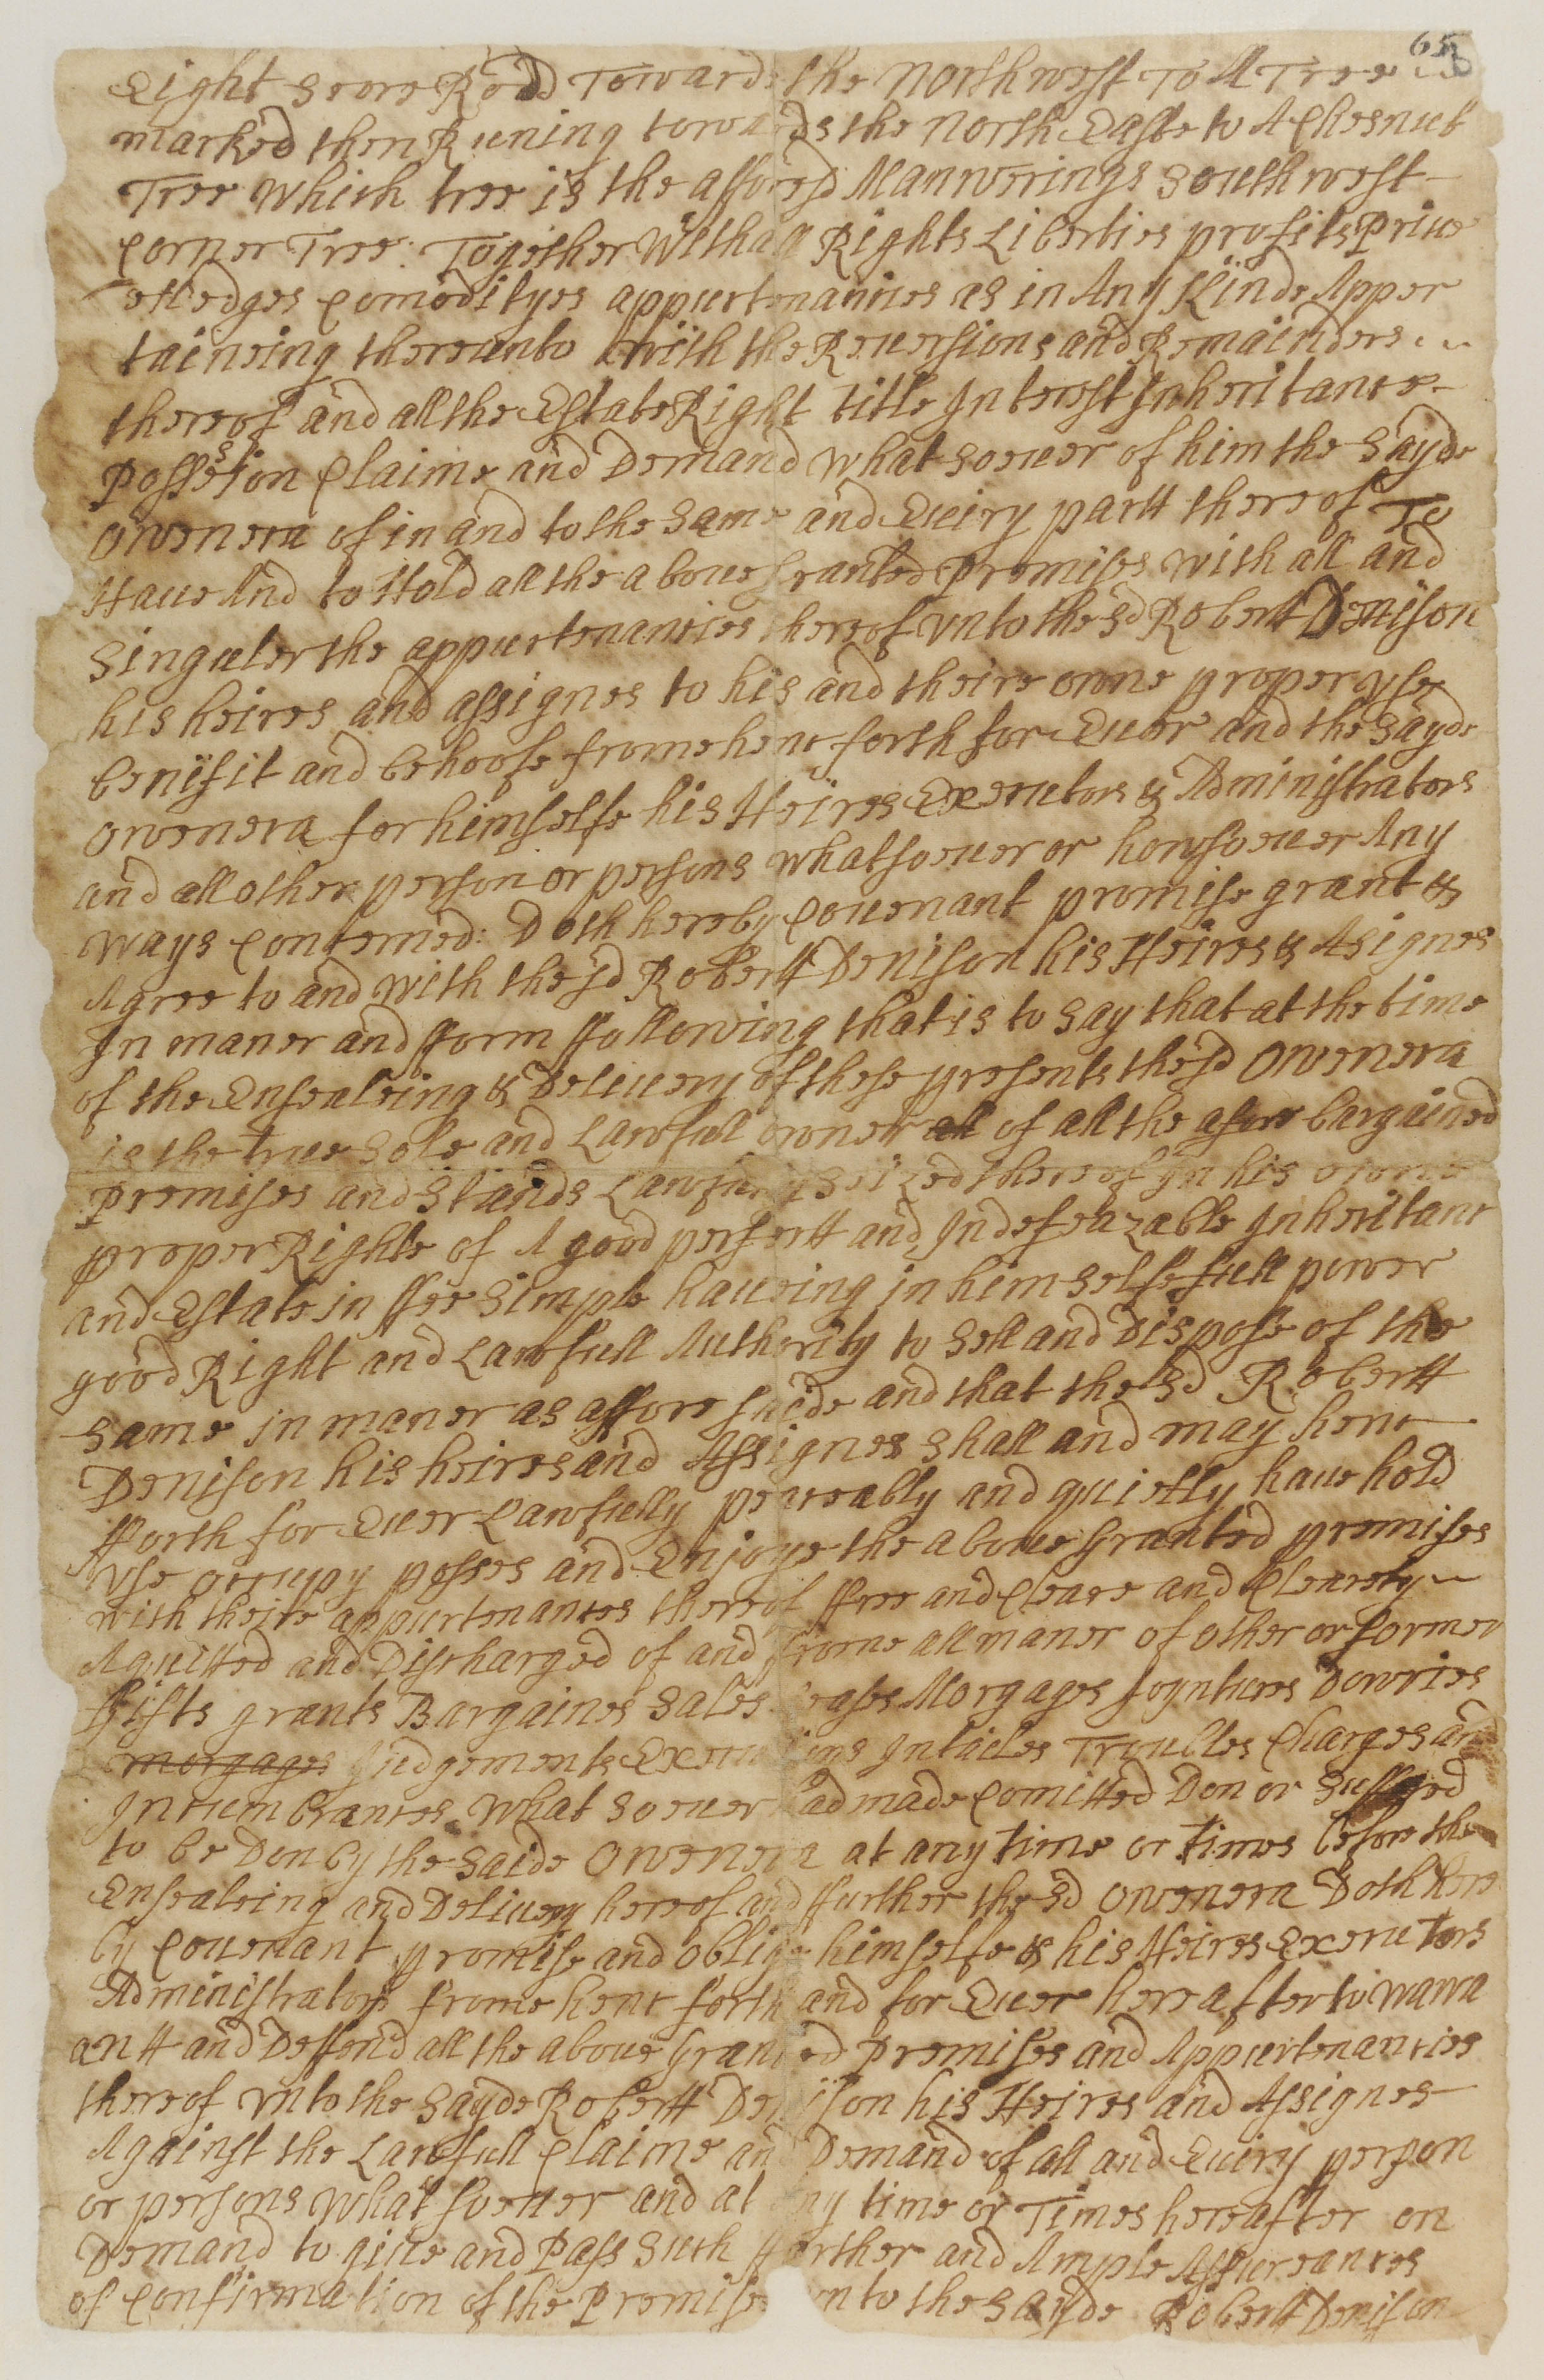 65
Eight Score Rodd Towards the Northwest To A Tree
marked then Runing towards the North Easte to A Chesnut
Tree Which tree is the afforesd Manwerings Southwest
Corner Tree: Together With all Rights Liberties profits Prive
elledges Comodityes appurtenances as in Any Kinde Apper
taineing thereunto with the Reversions and Remainders
thereof and all the Estate Right title Interest Inheritance
Possesion Claime and Demand what soever of him the Sayde
Oweneca of in and to the Same and Every partt thereof To
Have And to Hold all the above Granted Premises with all and
Singuler the appurtenancies thereof unto the sd Robertt Denison
his heires and assignes to his and theire owne proper use
benifit and behoofe frome hence forth for Ever and the Sayde
Oweneca for himselfe his Heires Executors & Administrators
and all other person or persons whatsoever or howsoever Any
ways Conserned: Doth hereby Covenant promise grant &
Agree to and with the sd Robertt Denison his Heires & Asignes
In maner and fform ffollowing that is to say that at the time
of the Ensealeing & Delivery of these presents the sd Oweneca
is the true Sole and Lawfull owner of all the afore bargained
Premises and Stands Lawfully Seized thereof In his owne
proper Righte of A good perfectt and Indefeazable Inheritanc
and Estate in ffee Simple haveing in him Selfe full power
good Right and Lawfull Authority to Sell and Dispose of the
Same in maner as affore saide and that the Sd Robertt
Denison his heires and Assignes Shall and may henc
fforth for Ever Lawfully peaceably and quietly have hold
use occupy posses and Enjoye the above Granted premises
with theire appurtenances thereof ffree and Cleare and Clearely
Aquitted and Discharged of and ffrome all maner of other or former
Gifts grants Bargaines Sales Leases Morgages Joyntures Dowries
morgages Judgements Executions Intailes Troubles Charges and
Incumbrances What soever had made Comitted Don or Suffered
to be Don by the Saide Oweneca at any time or times before the
Ensealeing and Delivery hereof and ffurther the Sd Oweneca Doth here
by Covenant promise and oblige himselfe & his Heires Executors
Administrators frome henc forth and for Ever hereafter to warra
antt and Deffend all the above Granted Premises and Appurtenancies
thereof unto the Sayde Robertt Denison his Heires and Assignes
Against the Lawfull Claime and Demand of all and Every person
or persons What soever and at any time or Times hereafter on
Demand to give and Pass Such ffarther and Ample Assureances
of Confirmation of the Premises unto the Sayde Robertt Denison